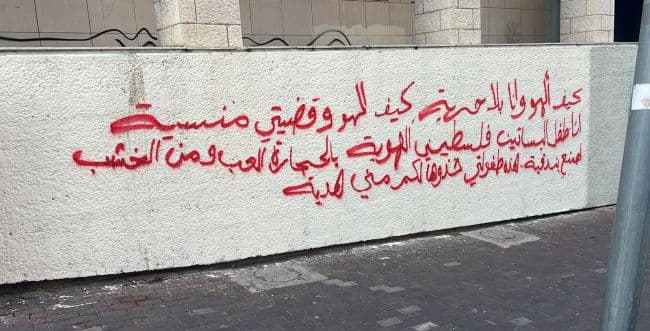 كيف ألهو وانا بلا حرية كيف الهو وقضيتي منسية
انا طفل البساتين فلسطيني الهوية بالحجارة العب ومن الخشب
اصنع بندقية هذه طفولتي خذوها لكم مني هدية